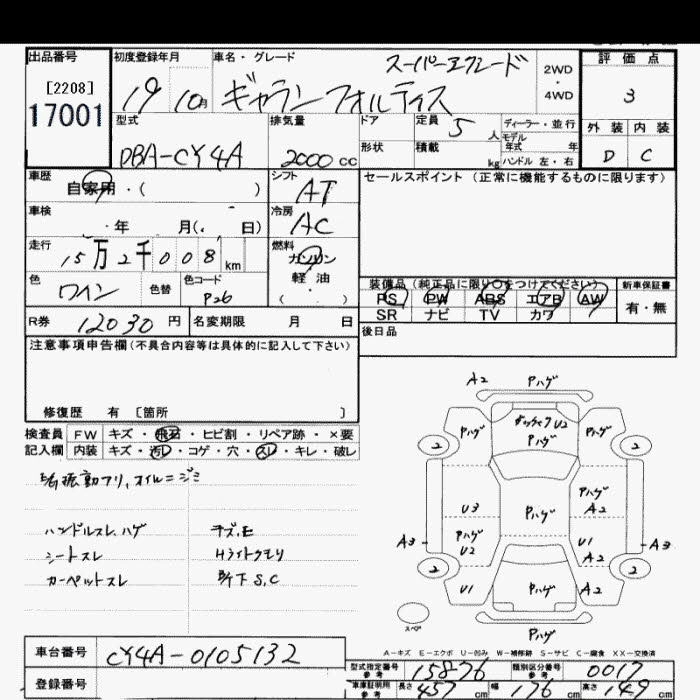 出品番号 初度登録年月 車名・グレード 評価点
[2208] スーパーエクシード 2WD
17001 19 10月 ギャラン フォルティス ・ 3
4WD
型式 排気量 ドア 定員 5人 ディーラー・並行 外装 内装
DBA-CY4A 2000cc 形状 積載 kg モデル年式 年 D C
ハンドル 左・右
車歴 自家用・( ) シフト AT セールスポイント (正常に機能するものに限ります)
車検 ・ 年 月(. 日) 冷房 AC
走行 15万2千008km 燃料 ガソリン
軽油
( ・ )
色 ワイン 色替 色コード P26 装備品 (純正品に限り○をつけてください) 新車保証書
PS PW ABS エアB AW 有・無
SR ナビ TV カワ
R券 12030円 名変期限 月 日 後日品
注意事項申告欄 (不具合内容等は具体的に記入して下さい)
修復歴 有 [箇所 ]
検査員 FW キズ・飛石・ヒビ割・リペア跡・×要
記入欄 内装 キズ・汚レ・コゲ・穴・スレ・キレ・破レ
振動アリ,オイルニジミ
ハンドルスレ、ハゲ キズ、E
シートスレ Hライトクモリ
カーペットスレ 下S,C
A2 Pハゲ
Pハゲ U2 Pハゲ
Pハゲ
2 2
Pハゲ
U3 Pハゲ A2
A3 Pハゲ U1 A3
U2 A2
2 2
U1 Pハゲ A2
スペア
Pハゲ
A-キズ E-エクボ U-凹み W-補修跡 S-サビ C-腐食 XX-交換済
車台番号 CY4A-0105132
型式指定番号 参考 15876 類別区分番号 参考 0017
登録番号 車庫証明用 参考 長さ 457cm 幅 176cm 高さ 149cm